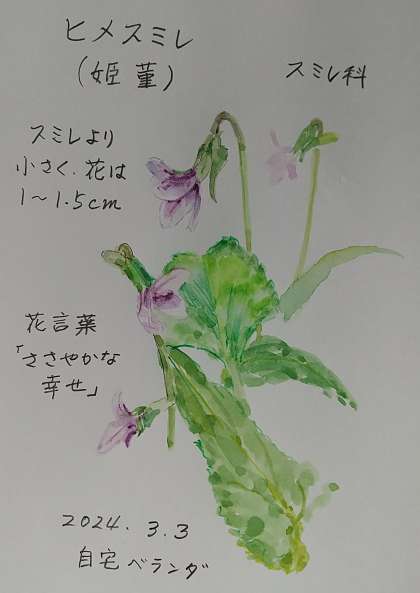 ヒメスミレ
(姫菫)
スミレ科
スミレより
小さく、花は
1～1.5cm
花言葉
「ささやかな
幸せ」
2024. 3.3
自宅ベランダ